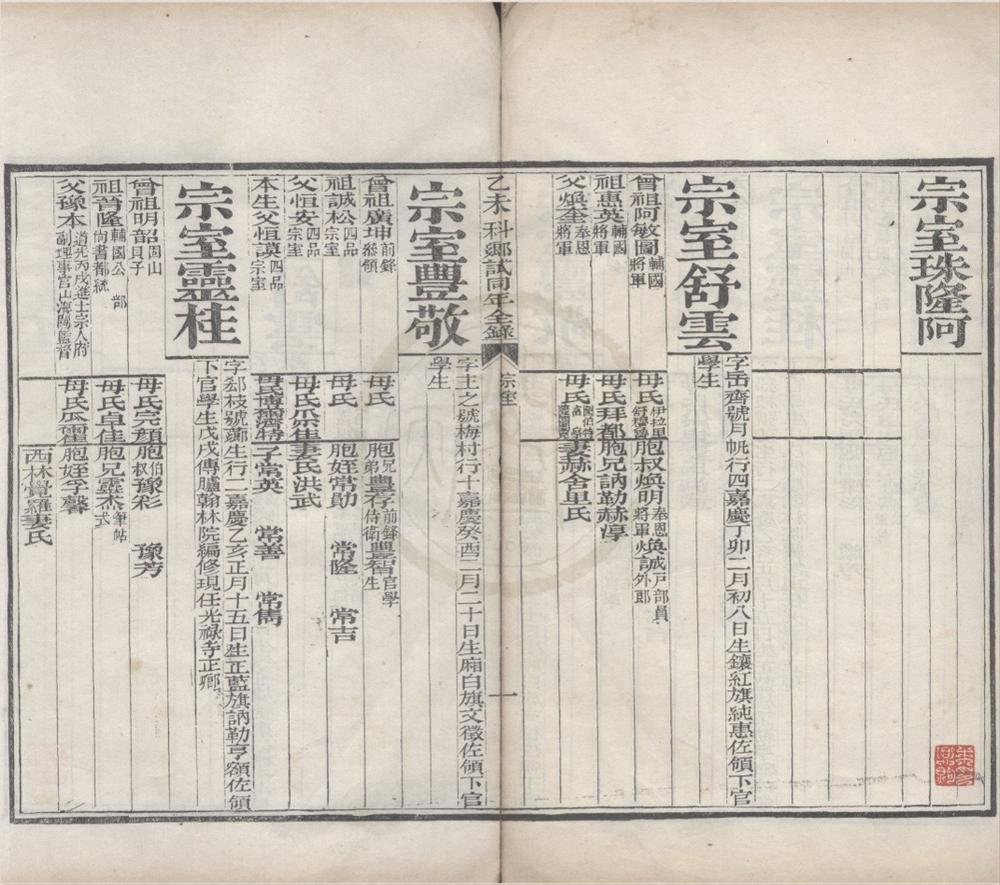 宗室珠隆阿
宗室舒雲
字雨齋號月帆行四嘉慶丁卯二月初八日生鑲紅旗純惠佐領下官
學生
曾祖阿敏圖輔國將軍
祖惠英輔國將軍
父煥奎奉恩將軍
母氏伊拉里舒穆魯 胞叔煥明奉恩將軍 煥誠戶部員外郎
母氏拜都 胞兄訥勒赫淳
母氏 妻赫舍里氏
乙未科鄉試同年全錄 宗室 一
宗室豐敬
字主之號梅村行十嘉慶癸酉二月二十日生廂白旗文徵佐領下官
學生
曾祖廣坤前鋒叅領
祖誠松四品宗室
父恒安四品宗室
本生父恒謨四品宗室
母氏 胞兄弟豐存前鋒侍衛 豐智官學生
母氏 胞姪常勛 常隆 常吉
母氏爪佳 妻氏洪武
母氏博爾濟特 子常英 常善 常儁
宗室靈桂
字郄枝號薌生行二嘉慶乙亥正月十五日生正藍旗訥勒亨額佐領
下官學生戊戌傳臚翰林院編修現任光祿寺正卿
曾祖明韶固山貝子
祖晉隆輔國公 部尙書都統
父豫本道光丙戌進士宗人府副理事官山海關監督
母氏完顏 胞伯叔豫彩 豫芳
母氏卓佳 胞兄靈杰筆帖式
母氏瓜爾佳 胞姪孚馨
西林覺羅妻氏